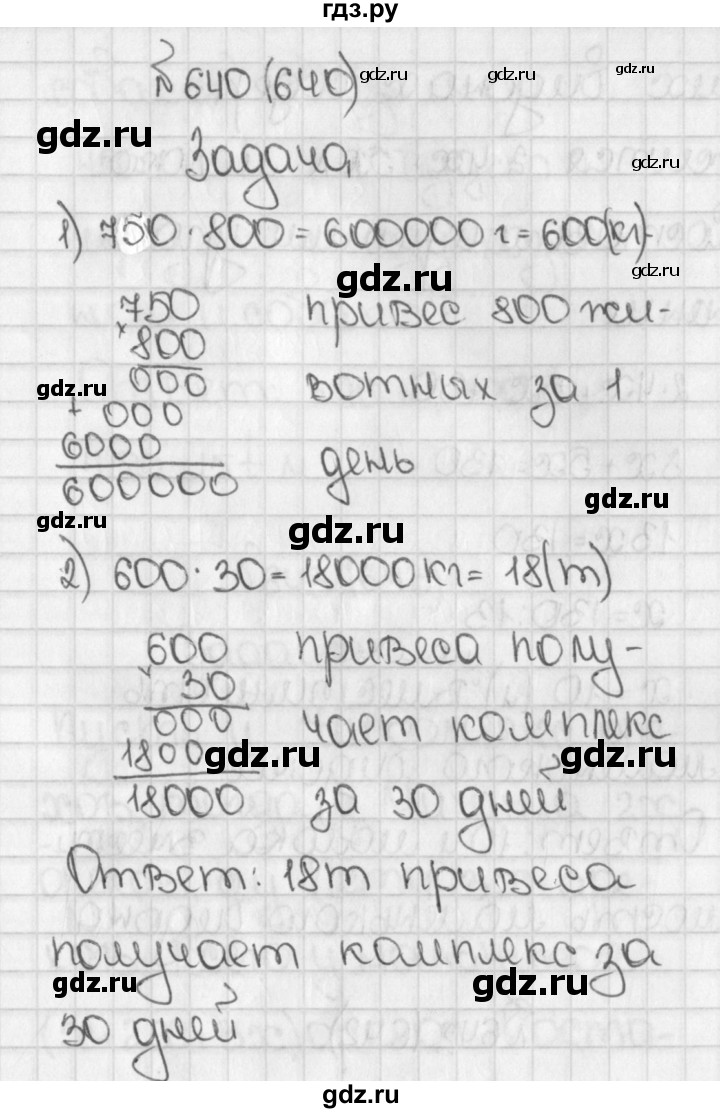 гдз.ру
№ 640 (640) gdz.ru gdz.ru gdz.ru
gdz.ru
Задача gdz.ru
1) 750 · 800 = 600000 г = 600(кг)-
gdz.ru gdz.ru
750 привес 800 жи-
× 800
gdz.ru 000 вотных за 1
+ 000
6000 день
600000
gdz.ru gdz.ru gdz.ru
2) 600 · 30 = 18000 кг = 18(т)
600 привеса полу-
× 30
000 чает комплекс
1800 gdz.ru gdz.ru
18000 за 30 дней
Ответ: 18т привеса
получает комплекс за
gdz.ru gdz.ru
30 дней
gdz.ru